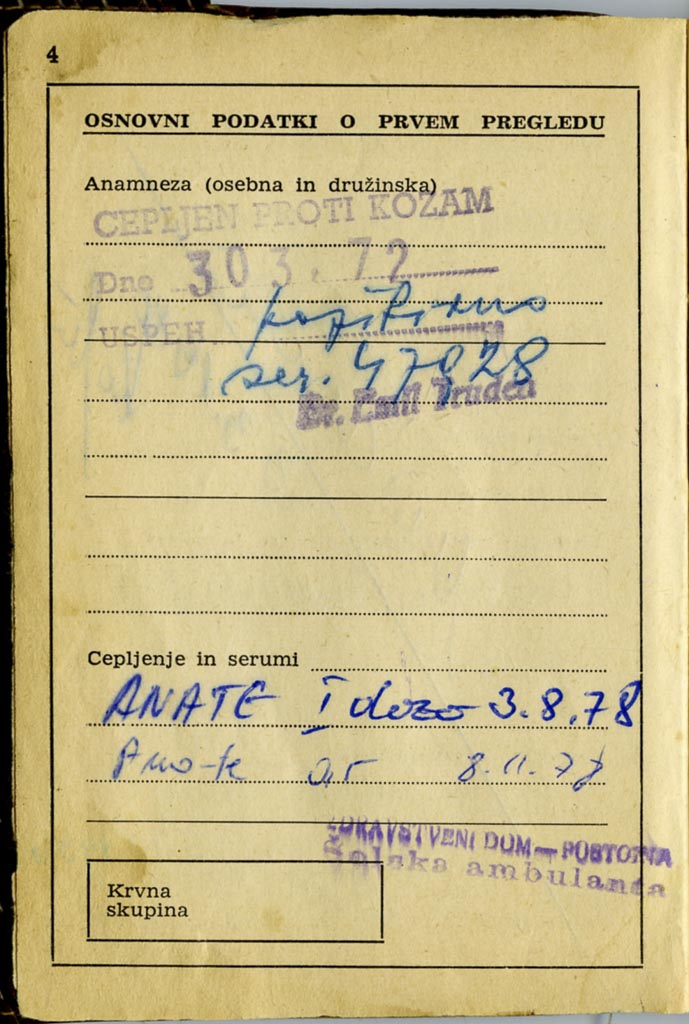 4
OSNOVNI PODATKI O PRVEM PREGLEDU
Anamneza (osebna in družinska)
CEPLJEN PROTI KOZAM
Dne 303.72
USPEH
ser. 47928
Dr. Emil Truden
Cepljenje in serumi
ANATE I dozo 3.8.78
Ana-te 0,5 8.11.78
ZDRAVSTVENI DOM — POSTOJNA
Šolska ambulanta
Krvna
skupina